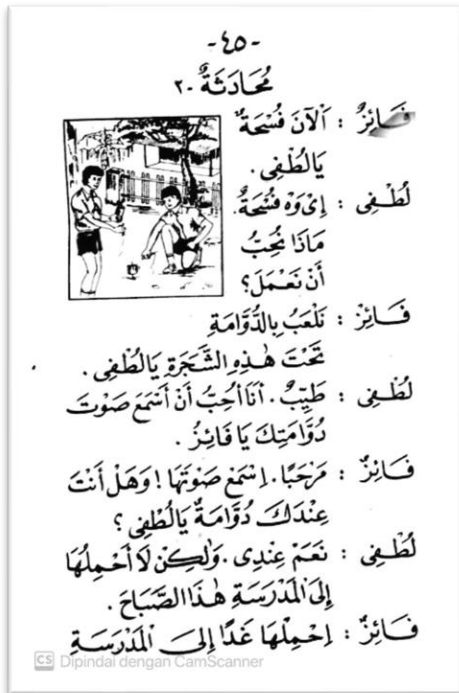 -٤٥-
مُحَادَثَةٌ ٢٠
فَائِزٌ : اَلْآنَ فُسْحَةٌ
يَالُطْفِى.
لُطْفِى : اِىْ وَهْ فُسْحَةٌ.
مَاذَا تُحِبُّ
أَنْ نَعْمَلَ؟
فَائِزْ : نَلْعَبُ بِالدُّوَّامَةِ
تَحْتَ هٰذِهِ الشَّجَرَةِ يَالُطْفِى.
لُطْفِى : طَيِّبٌ. أَنَا أُحِبُّ أَنْ أَسْمَعَ صَوْتَ
دُوَّامَتِكَ يَا فَائِزُ.
فَائِزٌ : مَرْحَبًا. اِسْمَعْ صَوْتَهَا! وَهَلْ أَنْتَ
عِنْدَكَ دُوَّامَةٌ يَالُطْفِى؟
لُطْفِى : نَعَمْ عِنْدِى. وَلٰكِنْ لَا أَحْمِلُهَا
إِلَى الْمَدْرَسَةِ هٰذَا الصَّبَاحَ.
فَائِزٌ : اِحْمِلْهَا غَدًا إِلَى الْمَدْرَسَةِ
CS Dipindai dengan CamScanner